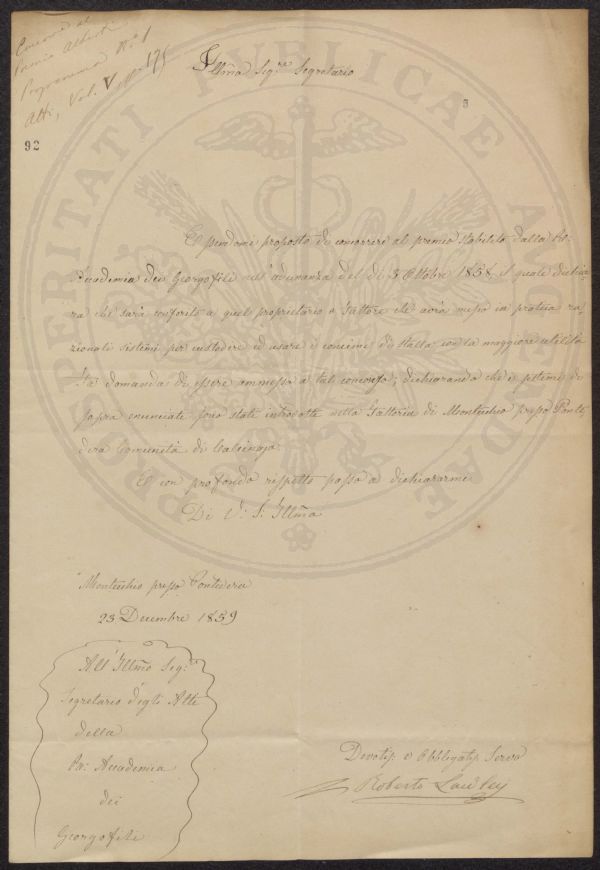 Concorso al
Premio Alberti
Programma N.° 1
Atti, Vol. V 175
Illma Sigre Segretario
3
92
PROSPERITATI PUBLICAE AUGENDAE
Essendomi proposto di concorrere al premio stabilito dalla Ac-
cademia dei Georgofili nell'adunanza del dì 3 Ottobre 1858, il quale dichia-
ra che sarà conferito a quel proprietario o fattore che avrà messo in pratica ra-
zionali sistemi per custodire ed usare i concimi di stalla con la maggiore utilità
fa domanda di essere ammesso a tal concorso; dichiarando che i sistemi di
sopra enunciati sono stati introdotti nella Fattoria di Montecchio presso Ponte-
dera Comunità di Calcinaja.
E con profondo rispetto passo a dichiararmi
Di V: S: Illma
Montecchio presso Pontedera
23 Decembre 1859
All'Illmo Sigre
Segretario degli Atti
della
Accademia
dei
Georgofili
Devotis. e Obbligatis. Servo
Roberto Lawley